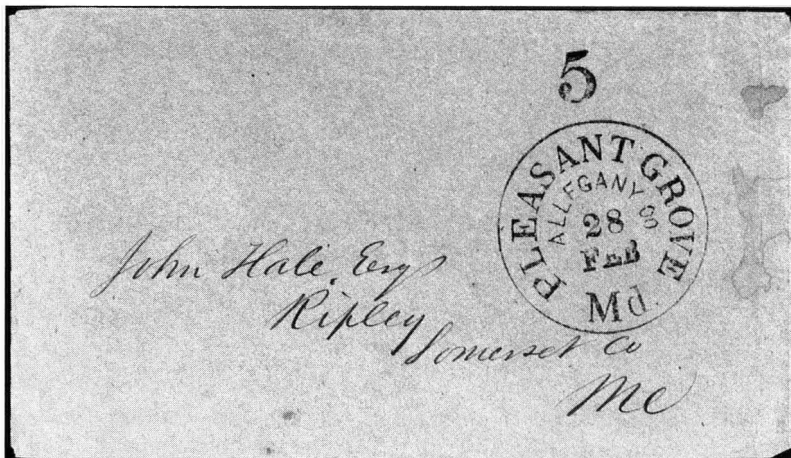 5
PLEASANT GROVE
ALLEGANY CO
28
FEB
Md.
John Hale, Esq
Ripley
Somerset Co
Me